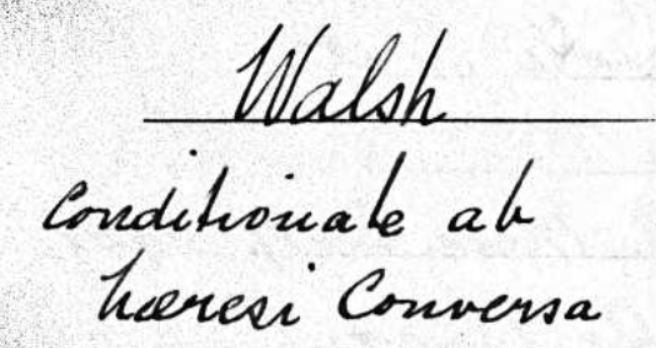 Walsh
Conditionale ab
hæresi Conversa